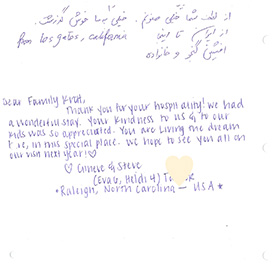 از لطف شما خیلی ممنونم. خیلی به ما خوش گذشت.
از ایران تا اینجا
from Los gatos, california
و خانواده
Dear Family Kratt,
Thank you for your hospitality! We had
a wonderful stay. Your kindness to us & to our
kids was so appreciated. You are living the dream
here, in this special place. We hope to see you all on
our visit next year! ♡
♡ & Steve
(Eva 6, Heidi 4)
*Raleigh, North Carolina — USA*